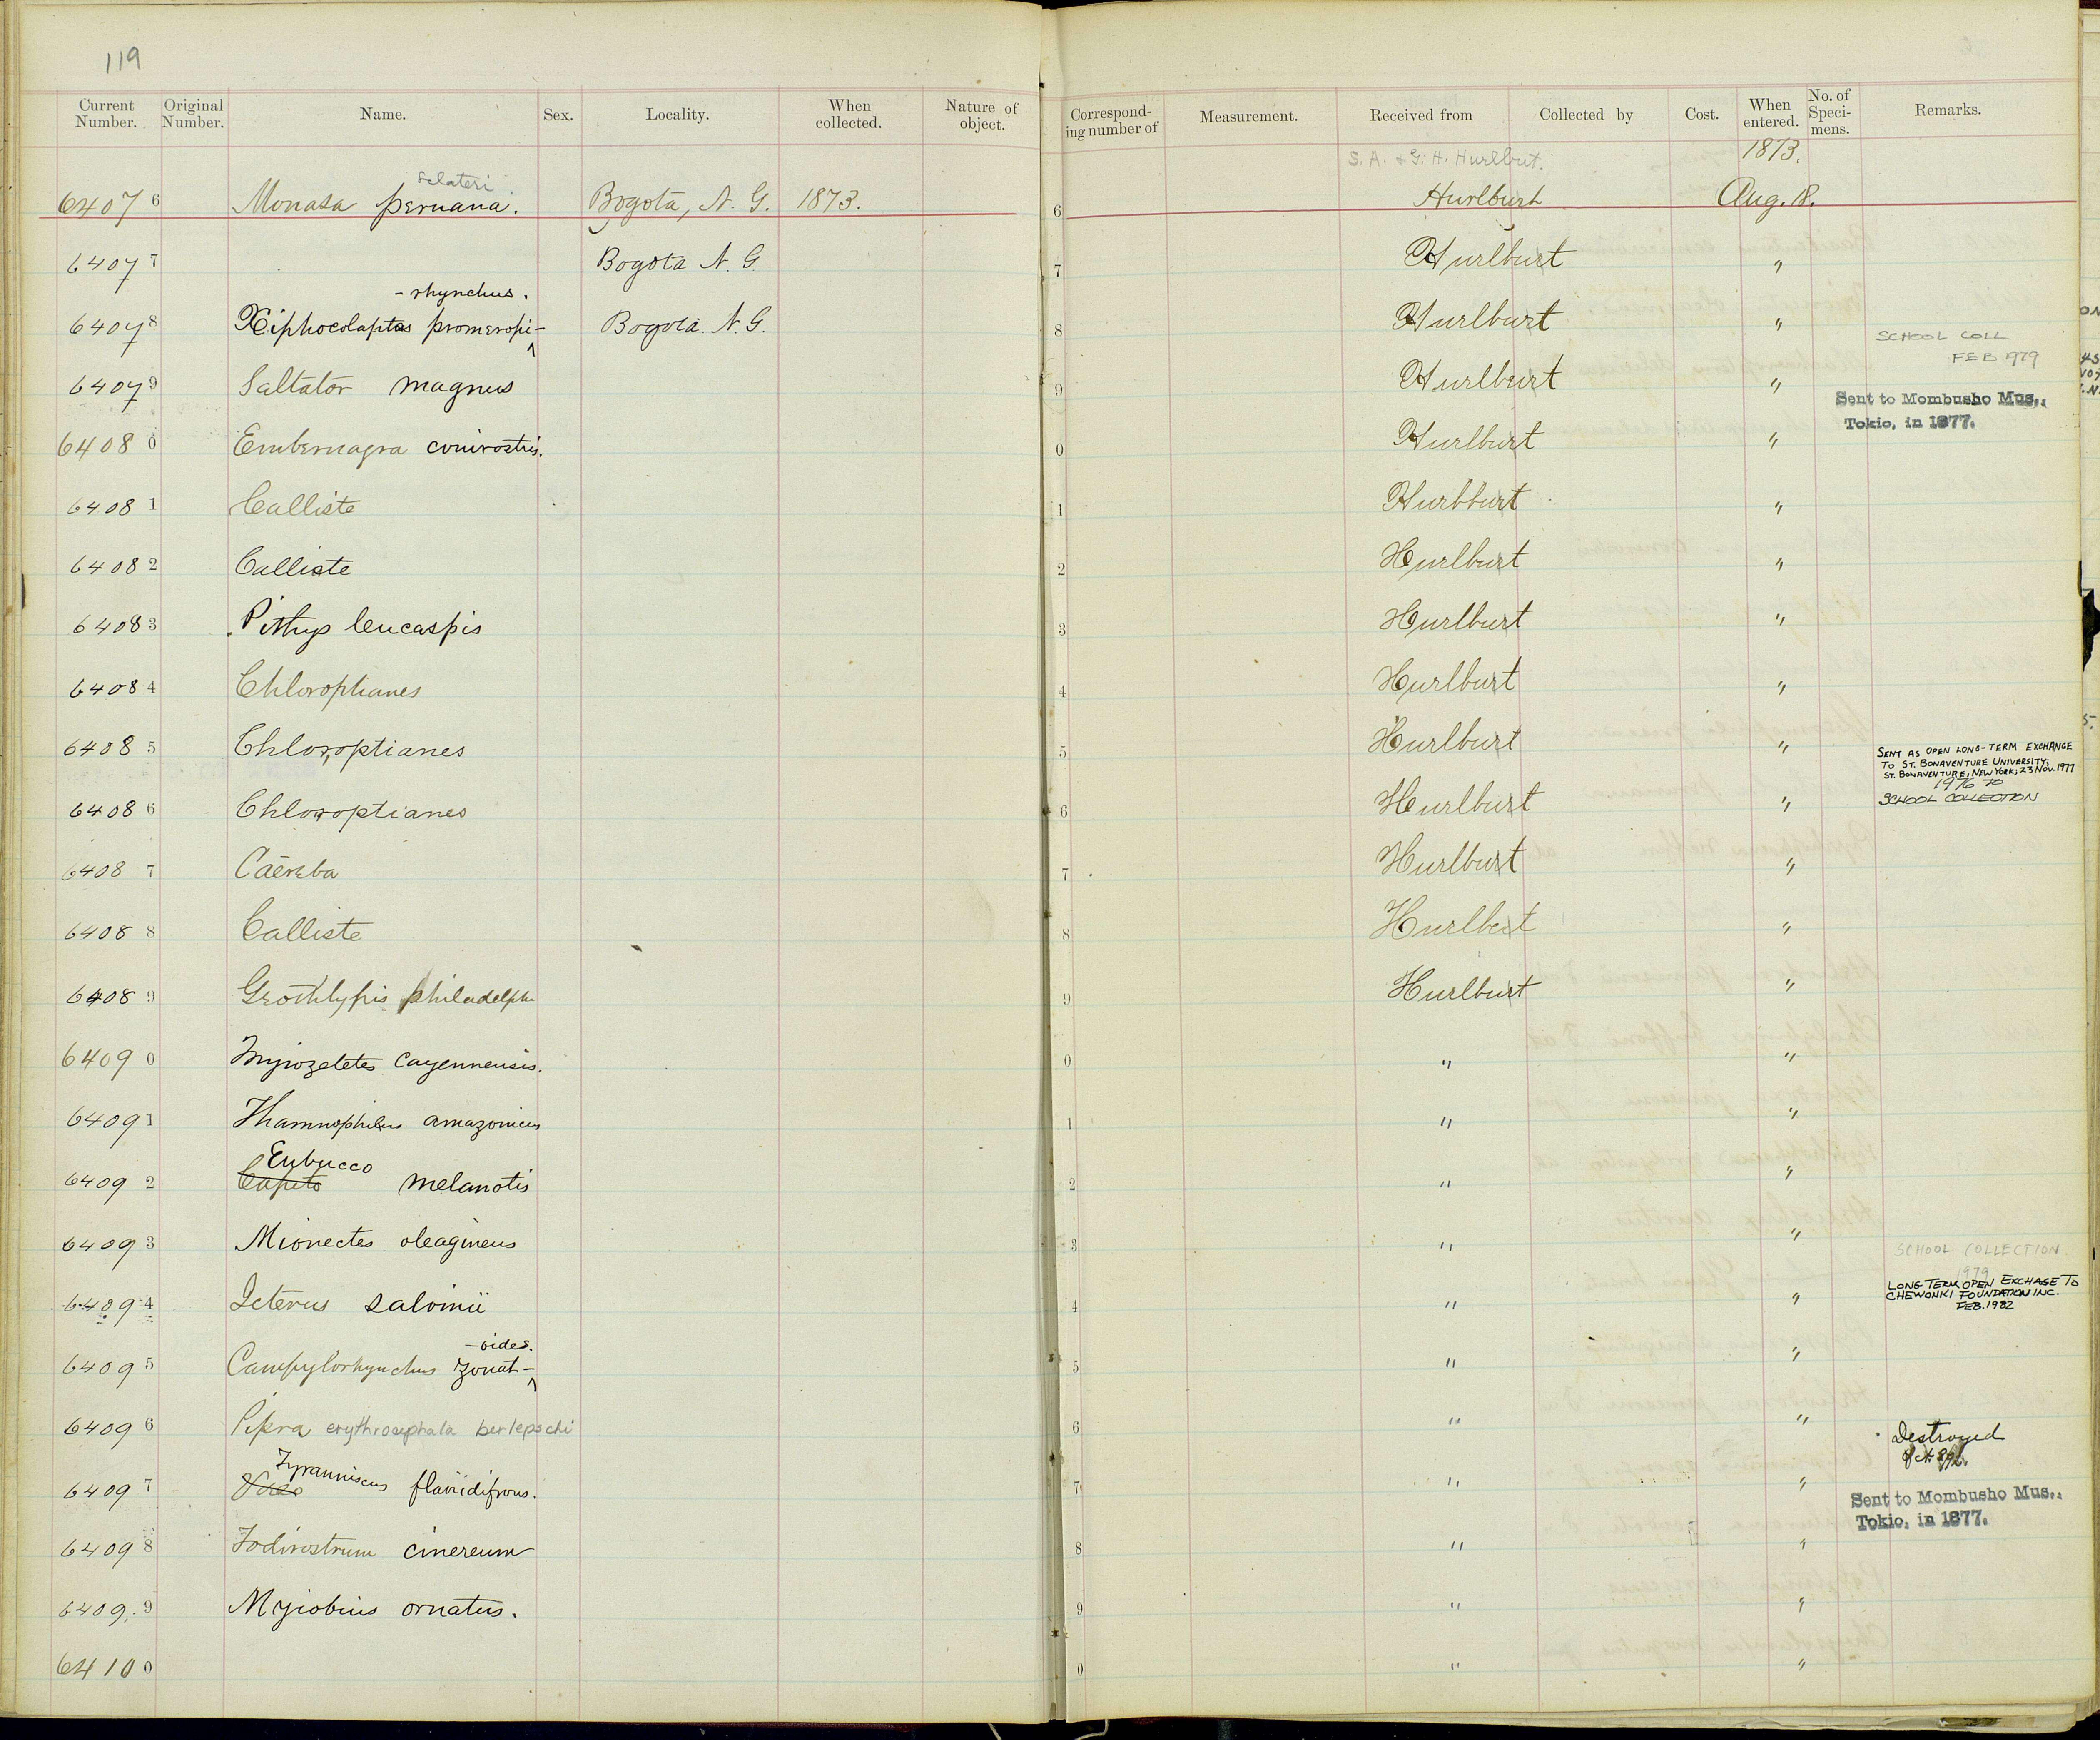 119
Current Number. Original Number. Name. Sex. Locality. When collected. Nature of object. Corresponding number of Measurement. Received from Collected by Cost. When entered. No. of Specimens. Remarks.
S. A. & G. H. Hurlbut. 1873.
sclateri
64076 Monasa peruana. Bogota, N. G. 1873. 6 Hurlburt Aug. 18.
64077 Bogota N. G. 7 Hurlburt "
-rhynchus.
64078 Xiphocolaptes promeropi- Bogota. N. G. 8 Hurlburt "
SCHOOL COLL
FEB 1979
64079 Saltator magnus 9 Hurlburt "
Sent to Mombusho Mus.,
Tokio, in 1877.
64080 Embernagra conirostris. 0 Hurlburt "
64081 Calliste 1 Hurlburt "
64082 Calliste 2 Hurlburt "
64083 Pithys leucaspis 3 Hurlburt "
64084 Chlorophanes 4 Hurlburt "
64085 Chloroptianes 5 Hurlburt "
SENT AS OPEN LONG-TERM EXCHANGE
TO ST. BONAVENTURE UNIVERSITY,
ST. BONAVENTURE, NEW YORK; 23 NOV. 1977
1976 TO
64086 Chloroptianes 6 Hurlburt " SCHOOL COLLECTION
64087 Caereba 7 Hurlburt "
64088 Calliste 8 Hurlburt "
64089 Geothlypis philadelphi 9 Hurlburt "
64090 Myiozetetes cayennensis. 0 " "
64091 Thamnophilus amazonicus 1 " "
Eubucco
64092 Capito melanotis 2 " "
64093 Mionectes oleagineus 3 " "
SCHOOL COLLECTION.
1979
LONG TERM OPEN EXCHAGE TO
CHEWONKI FOUNDATION INC.
FEB. 1982
64094 Icterus salvinii 4 " "
-oides.
64095 Campylorhynchus zonat- 5 " "
64096 Pipra erythrocephala berlepschi 6 " "
Destroyed
Tyranniscus
64097 Vireo flavidifrons. 7 " "
Sent to Mombusho Mus.,
Tokio, in 1877.
64098 Todirostrum cinereum 8 " "
64099 Myiobius ornatus. 9 " "
64100 0 " "